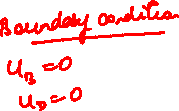 Boundary condition
U_B = 0
U_D = 0